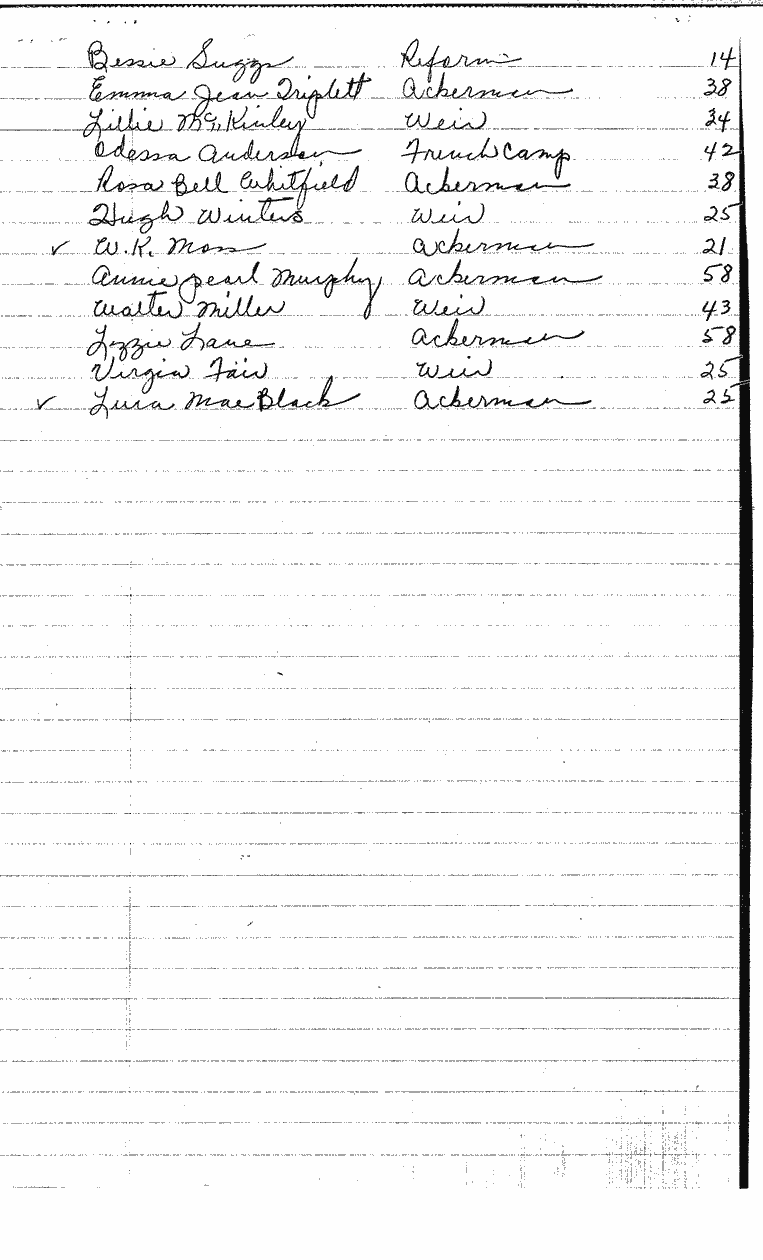 Bessie Suggs Reform 14
Emma Jean Triplett Ackerman 38
Lillie McKinley Weir 34
Odessa Anderson French Camp 42
Rosa Bell Whitfield Ackerman 38
Hugh Winters Weir 25
✓ W.K. Moss Ackerman 21
Annie Pearl Murphy Ackerman 58
Walter Miller Weir 43
Lizzie Lane Ackerman 58
Virgia Fair Weir 25
✓ Lura Mae Black Ackerman 25